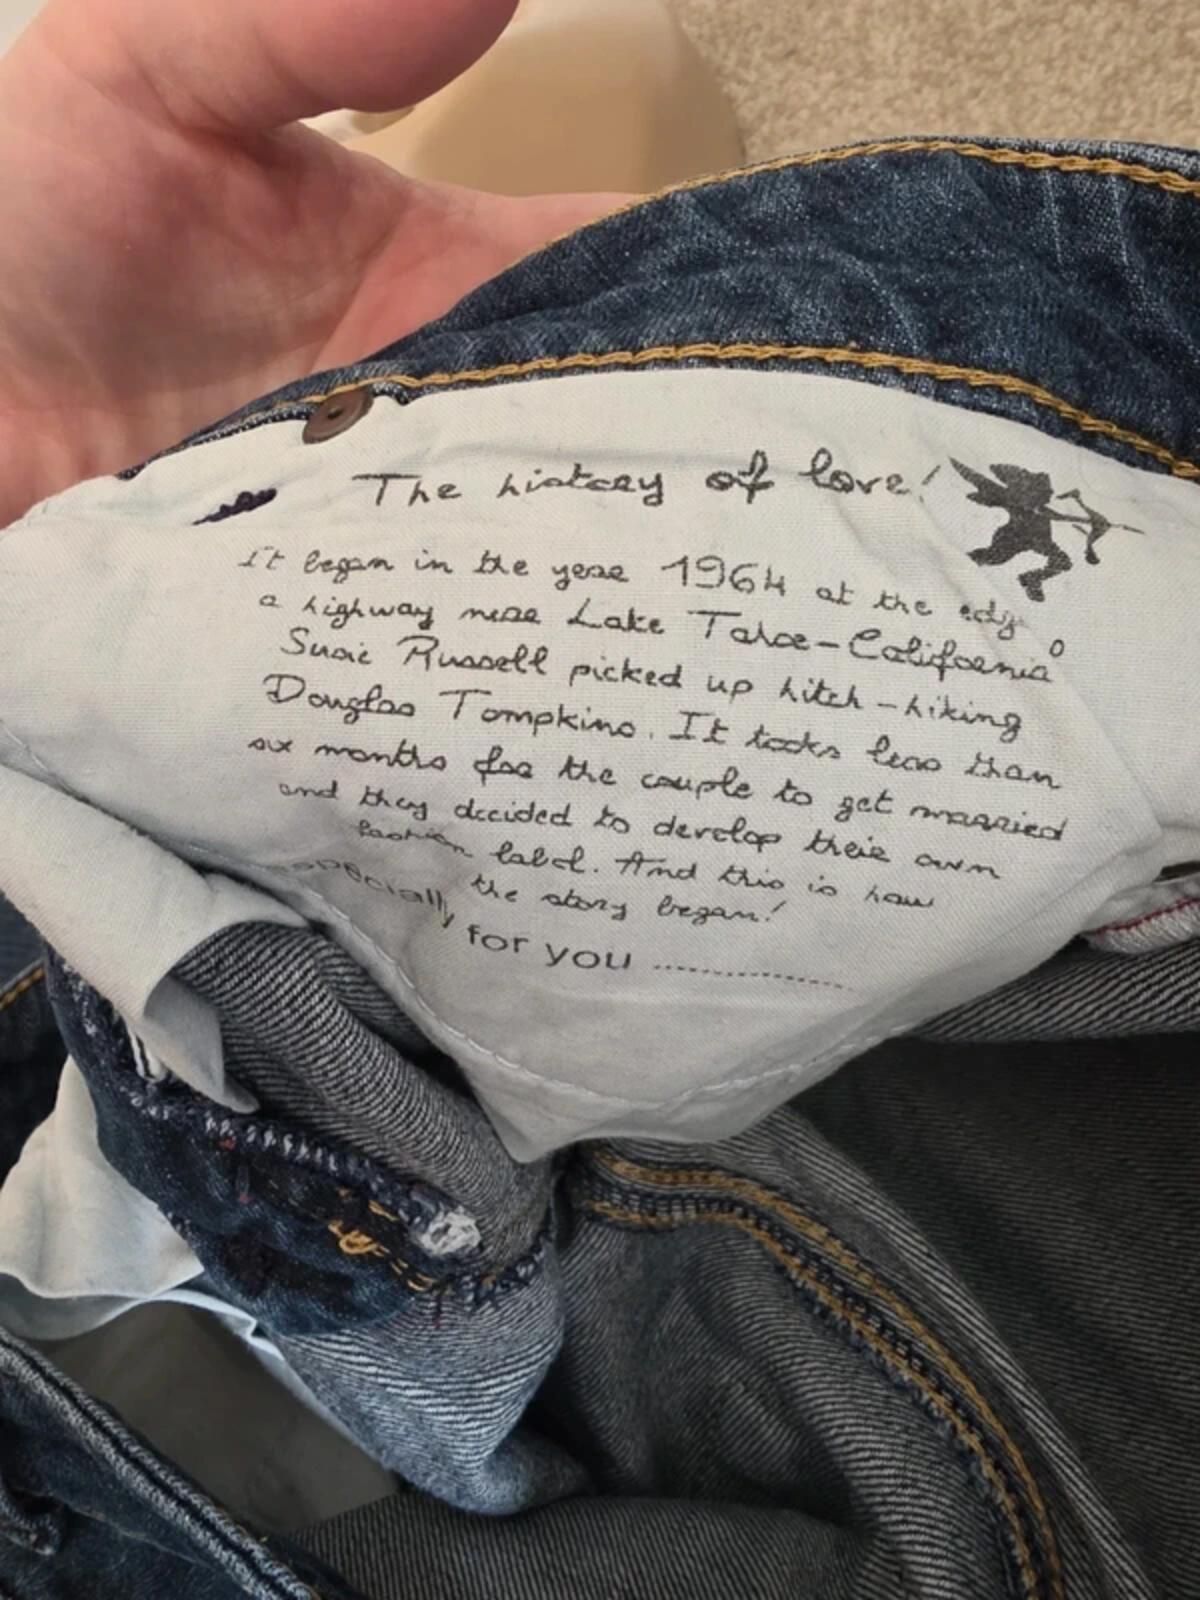 The history of love!
It began in the year 1964 at the edge o
a highway near Lake Tahoe-California
Susie Russell picked up hitch-hiking
Douglas Tompkins. It tooks less than
six months for the couple to get married
and they decided to develop their own
fashion label. And this is how
the story began!
especially for you